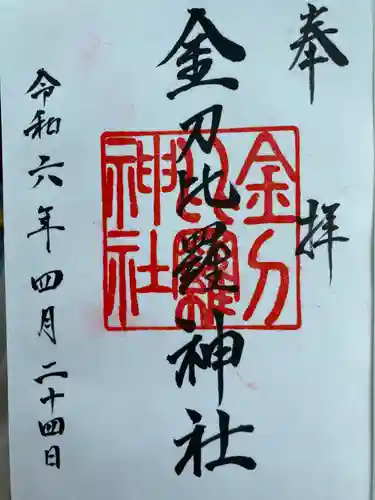 奉拝
金刀比羅神社
金刀比羅神社
令和六年四月二十四日